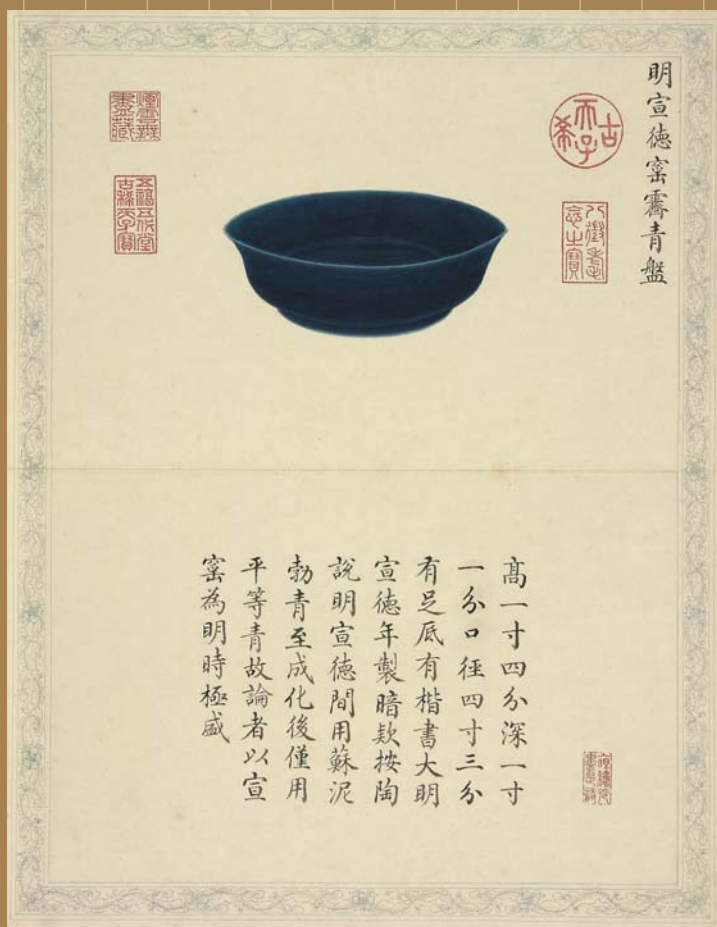 明宣德窰霽青盤
古希天子
八徵耄
念之寶
五福五代堂
古稀天子寶
高一寸四分深一寸
一分口徑四寸三分
有足底有楷書大明
宣德年製暗款按陶
說明宣德間用蘇泥
勃青至成化後僅用
平等青故論者以宣
窰為明時極盛